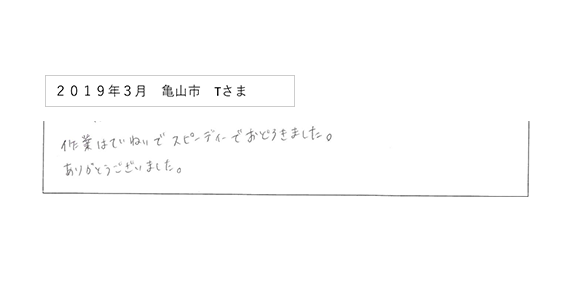 ２０１９年３月　亀山市　Tさま
作業はていねいでスピーディーでおどろきました。
ありがとうございました。